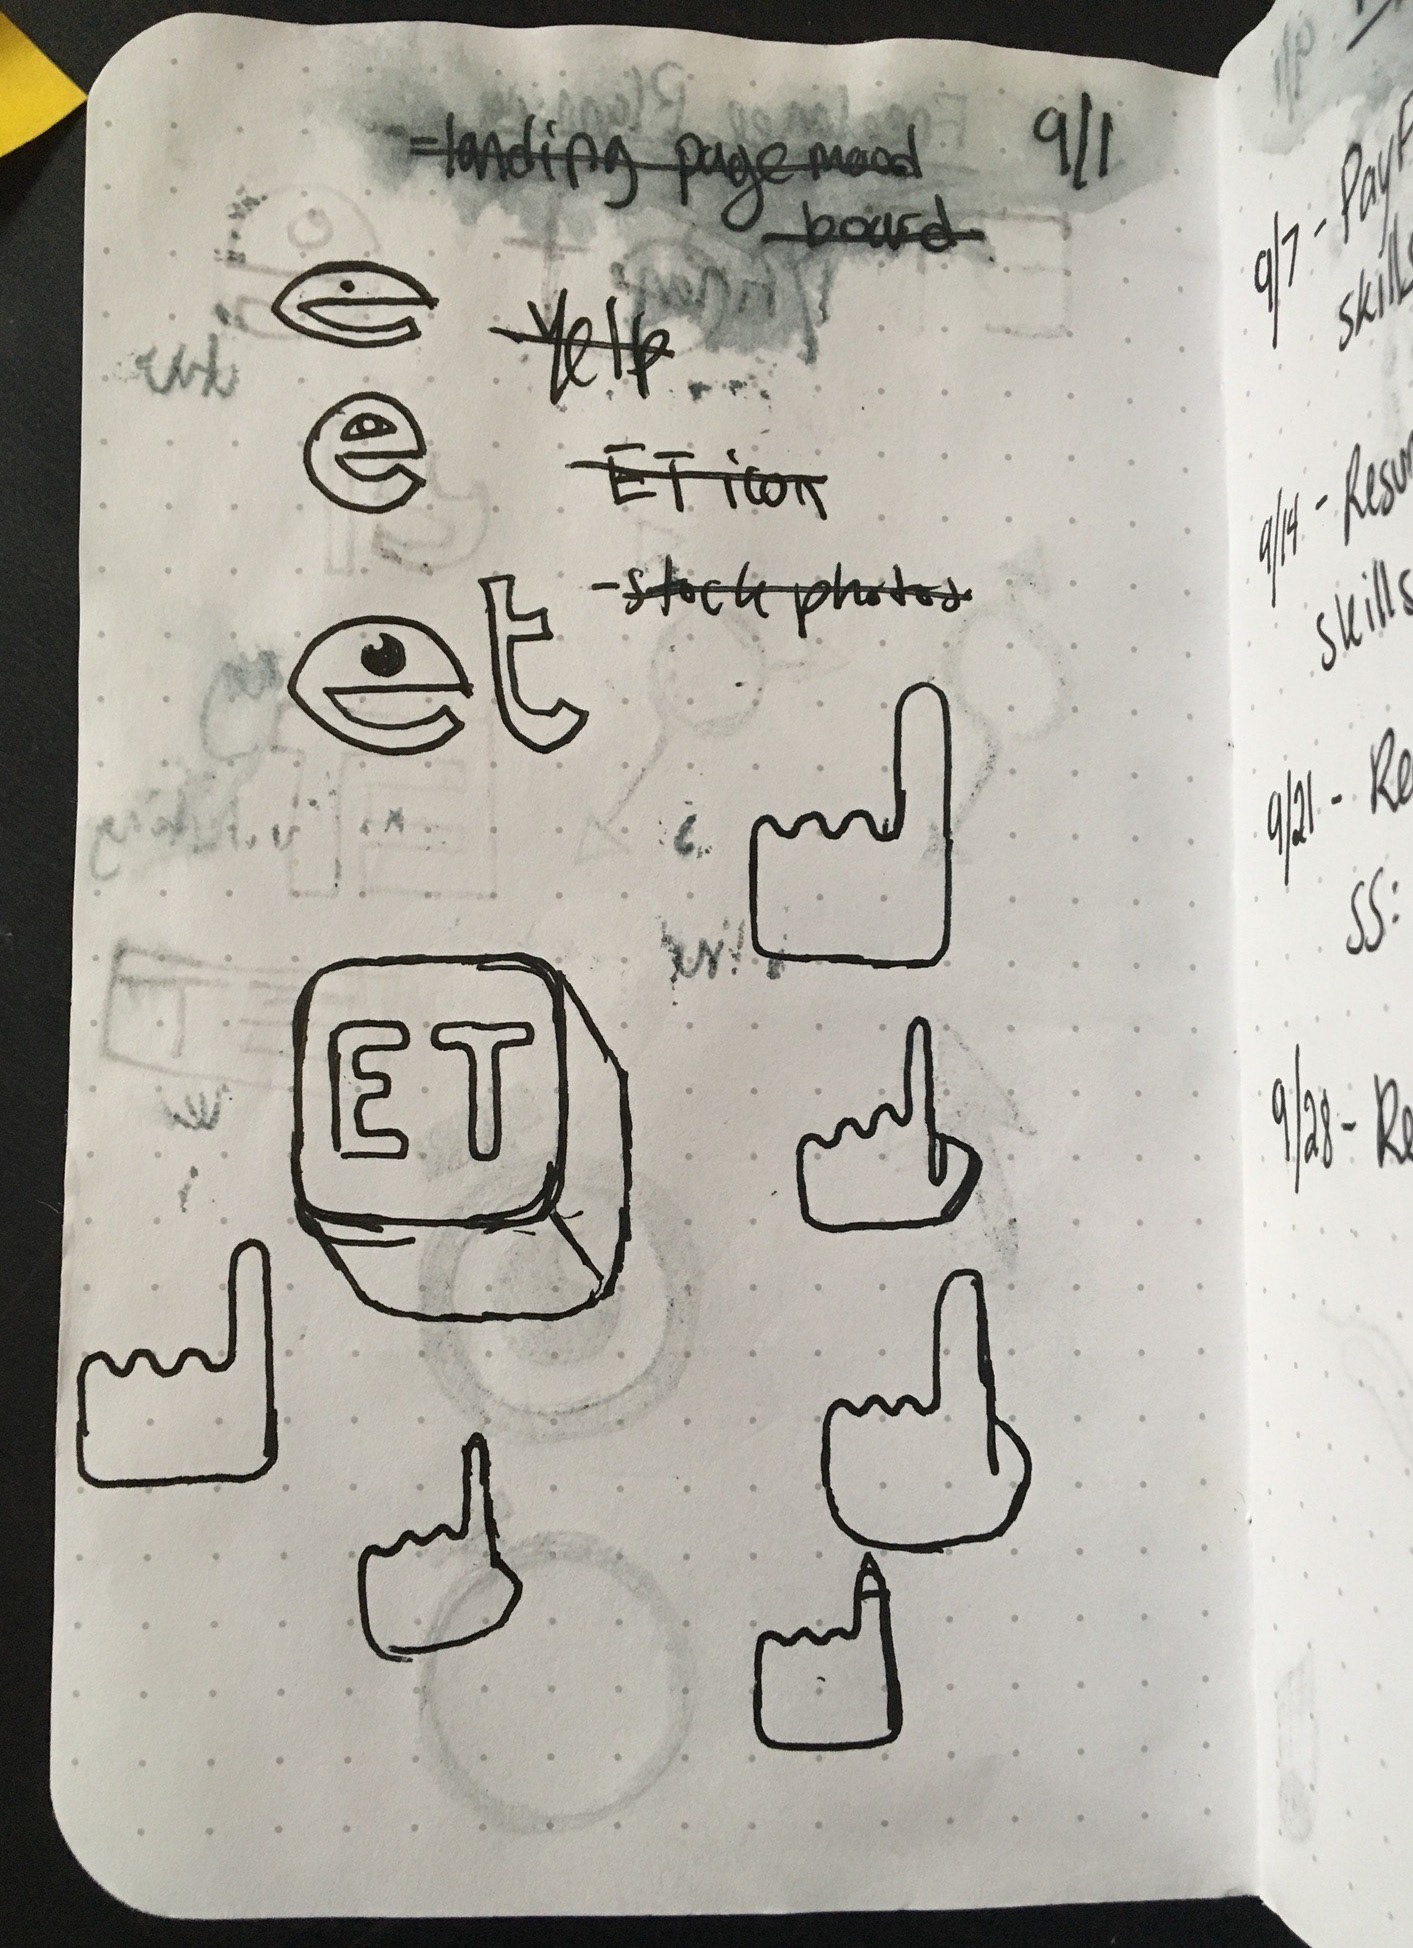 -landing page mood 9/1
board
e
-Yelp
e
-ET icon
et
-stock photos
ET
9/7 - Pay
skills
9/14 - Resu
skills
9/21 - Re
SS:
9/28 - Re